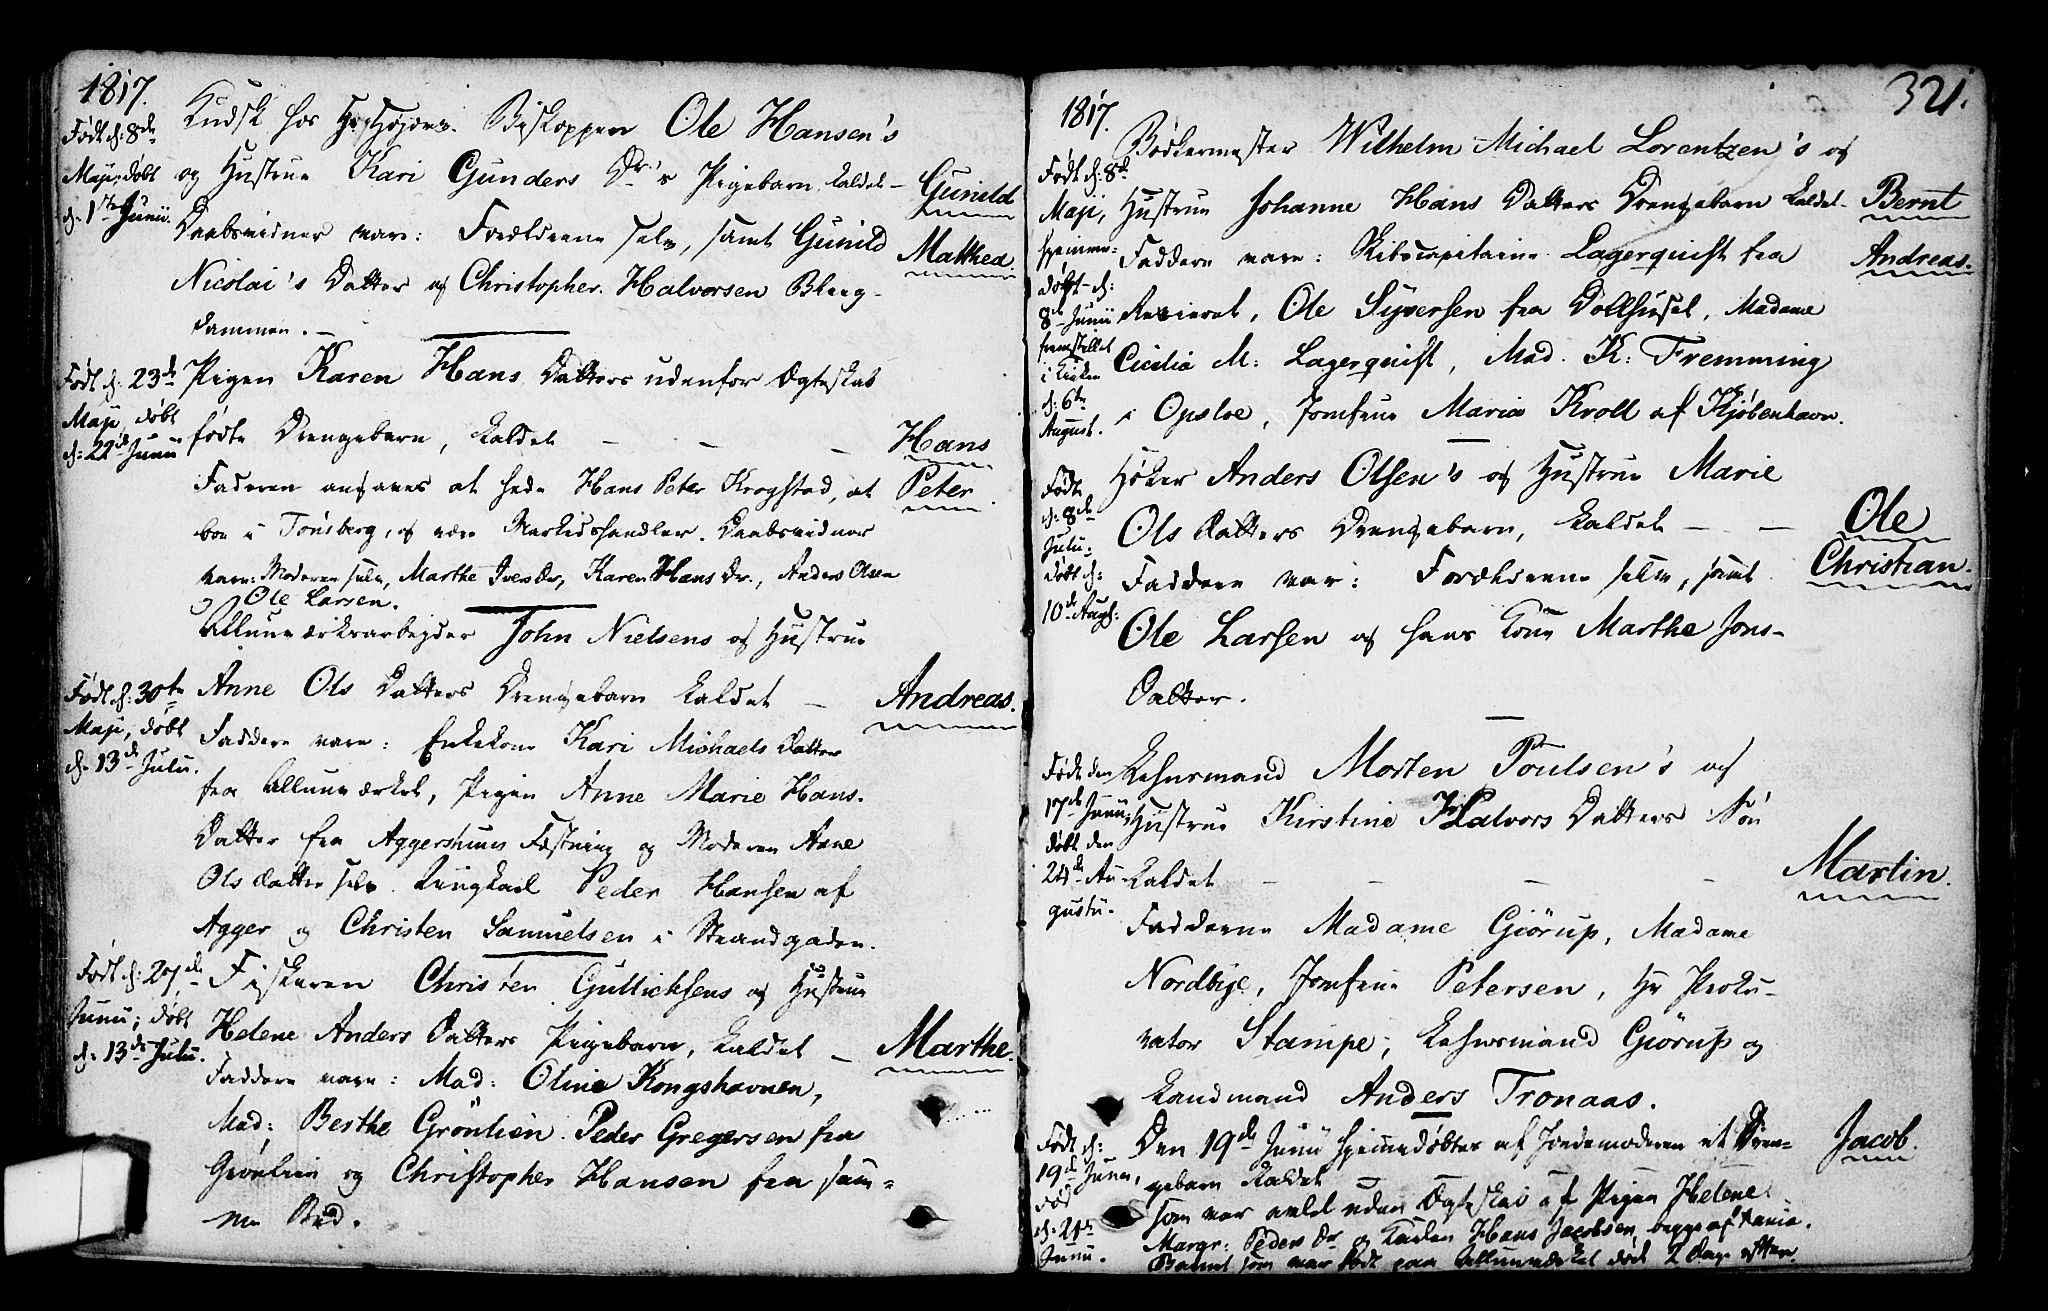 1817.
Kudsk hos Biskoppen Ole Hansen's
Født d: 8de
Maji, døbt
d. 1ste Junii.
og Hustrue Kari Gunders Dr's Pigebarn, kaldet –
Gunild
Mathea
Daabsvidner vare: Forældrene selv, samt Gunild
Nicolai's Datter og Christopher Halvorsen Bleeg-
dammen. –
Født d: 23de
Maji, døbt
d: 22de Junii
Pigen Karen Hans Datters udenfor Ægteskab
fødte Drengebarn, kaldet – – –
Hans
Peter
Faderen angaves at hede Hans Peter Krogstad, at
boe i Tönsberg, og være Markedshandler. Daabsvidner
vare: Moderen selv, Marthe Ivers Dr, Karen Hans Dr., Anders Olsen
og Ole Larsen.
Allunværksarbeyder John Nielsens og Hustrue
Født d: 30te
Maji, døbt
d. 13de Julii.
Anne Ols Datters Drengebarn kaldet –
Andreas.
Faddere vare: Enkekone Kari Michaels Datter
fra Allunværket, Pigen Anne Marie Hans-
Datter fra Aggershuus Fæstning og Moderen Anne
Ols Datter selv. Ungkarl Peder Hansen af
Agger og Christen Samuelsen i Strandgaden.
Født d: 27de
Junii; døbt
d. 13de Julii.
Fiskeren Christen Gullichsens og Hustrue
Helene Anders Datters Pigebarn, kaldet –
Marthe.
Faddere vare: Mad: Olina Kongshavnen,
Mad: Berthe Grönlien. Peder Gregersen fra
Grönlien og Christopher Hansen fra sam-
me Sted.
321.
1817.
Født d: 8de
Maji,
hjemme-
døbt d:
8de Junii
fremstillet
i Kirken
d: 6te
August.
Bødkermester Wilhelm Michael Lorentzen's og
Hustrue Johanne Hans Datters Drengebarn kaldet
Bernt
Andreas.
Faddere vare: Skibscapitaine Lagerquist fra
Revieret, Ole Syversen fra Dollhuset, Madame
Cicilia M: Lagerquist, Mad. K: Fremming
i Opsloe, Jomfrue Maria Kroll af Kjöbenhavn.
Født
d: 8de
Julii.
døbt d:
10de Augs:
Høker Anders Olsen's og Hustrue Marie
Ols Datters Drengebarn, kaldet – –
Ole
Christian.
Faddere var: Forældrene selv, samt
Ole Larsen og hans Kone Marthe Jons-
Datter.
Født den
17de Junii,
døbt den
24de Au-
gusti.
Lehnsmand Morten Poulsen's og
Hustrue Kirstine Halvors Datters Søn
kaldet – – – –
Martin.
Fadderne Madame Giörup, Madame
Nordbye, Jomfrue Petersen, Hr Proku-
rator Stampe, Lehnsmand Giörup og
Landmand Anders Tronaas.
Født d:
19de Junii,
død
d: 21de
Junii.
Den 19de Junii hjemmedøbtes af Jordemoderen et Dren-
gebarn kaldet –
Jacob.
som var avlet uden Ægteskab af Pigen Helene
Margr: Peders Dr og Karlen Hans Jacobsen, begge af
Barnet som var født paa Allunværket døde 2 Dage efter.